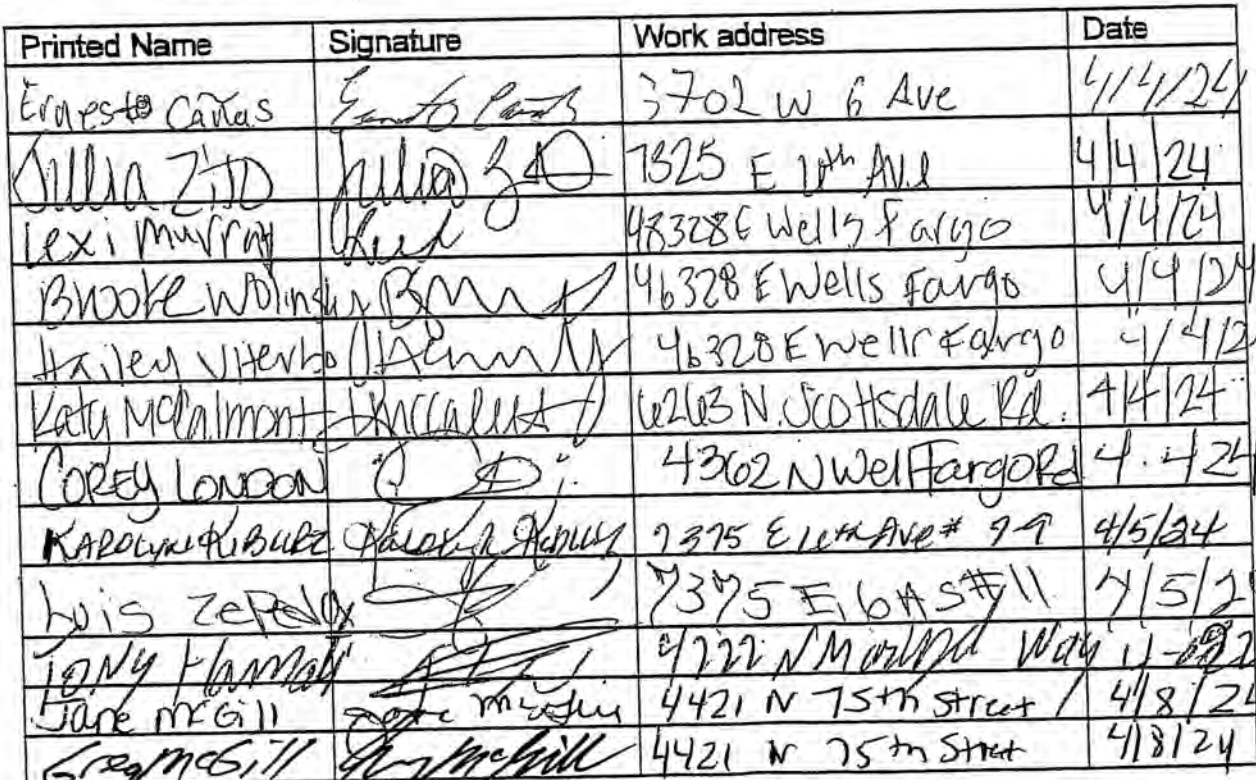 Printed Name Signature Work address Date
Ernesto Cañas 3702 W 6 Ave 4/4/24
Jillia Zito Jillia Zito 7325 E 6th Ave 4/4/24
Lexi Murray 48328 E Wells Fargo 4/4/24
Brooke Wolinsky 46328 E Wells Fargo 4/4/24
Hailey Viterbo 46328 E Wells Fargo 4/4/2
Katy McCalmont 6263 N. Scottsdale Rd. 4/4/24
COREY LONDON 4362 N Wel Fargo Rd 4.424
KAROLYNE KIBURZ 7375 E 6th Ave # 4/5/24
Luis Zepeda 7375 E 6th S #11 4/5/2
Tony 4222 N Way
Jane McGill Jane McGill 4421 N 75th Street 4/8/24
Greg McGill Greg McGill 4421 N 75th Street 4/8/24